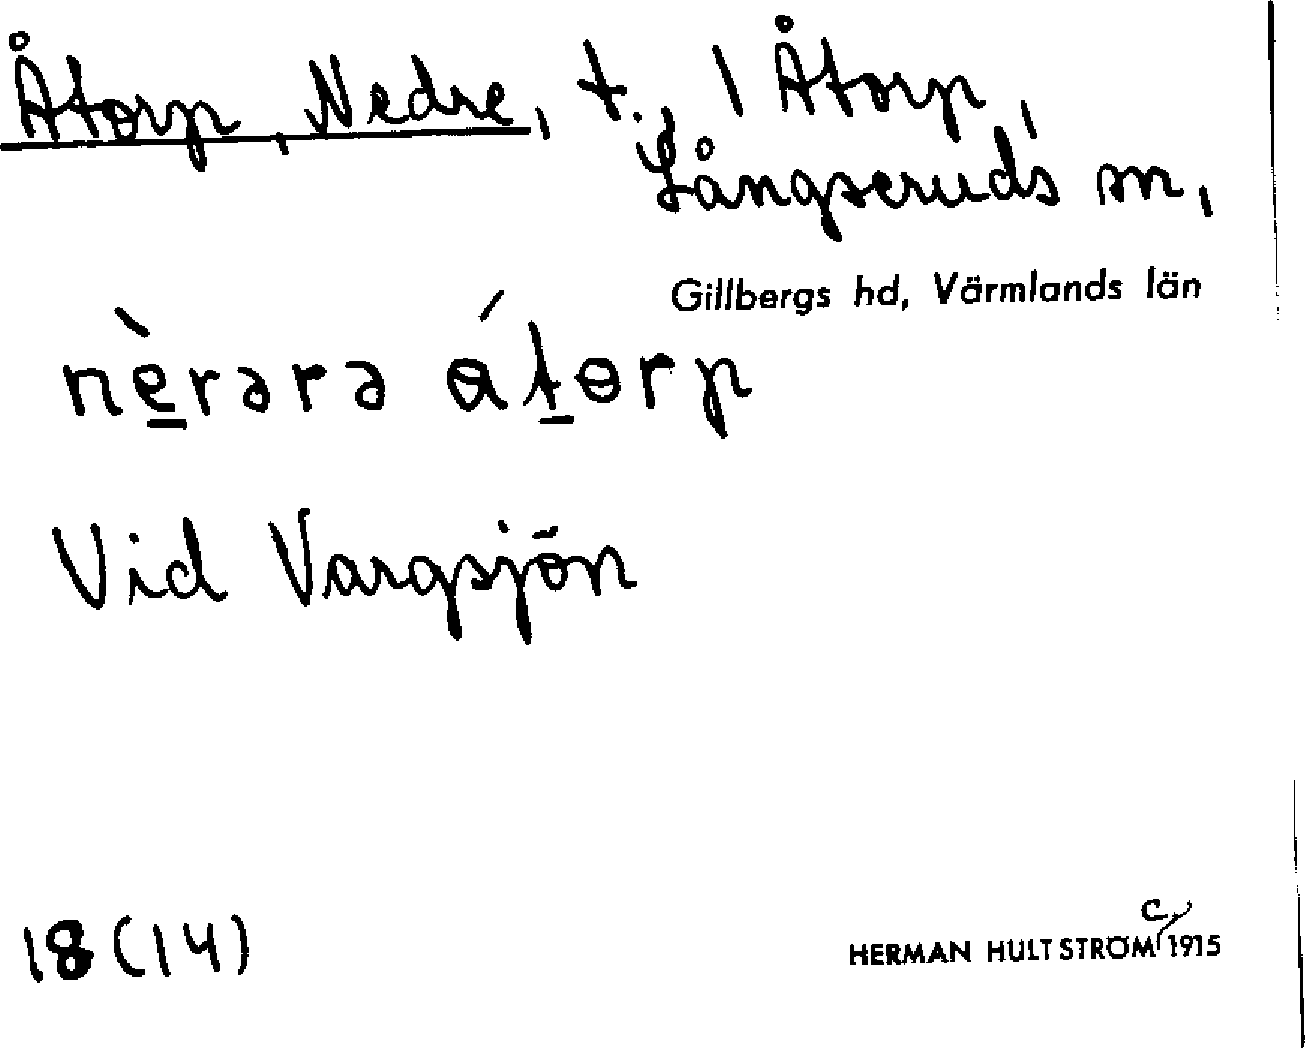 Åtorp, Nedre, t., 1 Åtorp,
Långseruds sn,
Gillbergs hd, Värmlands län
nè̱rərə át̠ɵrp
Vid Vargsjön
18 (14)
HERMAN HULTSTRÖM c. 1915